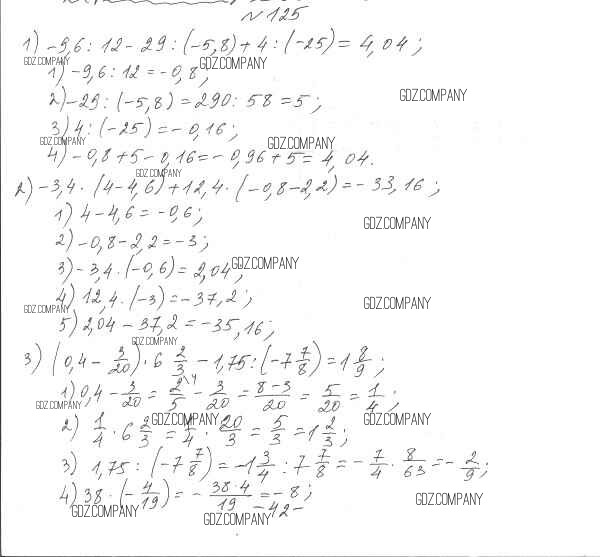 №125
1) -9,6 : 12 - 29 : (-5,8) + 4 : (-25) = 4,04;
GDZ.COMPANY GDZ.COMPANY
1) -9,6 : 12 = -0,8;
2) -29 : (-5,8) = 290 : 58 = 5;
GDZ.COMPANY
3) 4 : (-25) = -0,16;
GDZ.COMPANY GDZ.COMPANY
4) -0,8 + 5 - 0,16 = -0,96 + 5 = 4,04.
GDZ.COMPANY
2) -3,4 · (4 - 4,6) + 12,4 · (-0,8 - 2,2) = -33,16;
1) 4 - 4,6 = -0,6;
GDZ.COMPANY
2) -0,8 - 2,2 = -3;
3) -3,4 · (-0,6) = 2,04;
GDZ.COMPANY
4) 12,4 · (-3) = -37,2;
GDZ.COMPANY GDZ.COMPANY
5) 2,04 - 37,2 = -35,16;
GDZ.COMPANY
3) (0,4 - 3/20) · 6 2/3 - 1,75 : (-7 7/8) = 1 8/9;
1) 0,4 - 3/20 = 2\4/5 - 3/20 = 8-3/20 = 5/20 = 1/4;
GDZ.COMPANY GDZ.COMPANY GDZ.COMPANY
2) 1/4 · 6 2/3 = 1/4 · 20/3 = 5/3 = 1 2/3;
3) 1,75 : (-7 7/8) = -1 3/4 : 7 7/8 = -7/4 · 8/63 = -2/9;
4) 38 · (-4/19) = -38·4/19 = -8;
GDZ.COMPANY GDZ.COMPANY GDZ.COMPANY
-42-